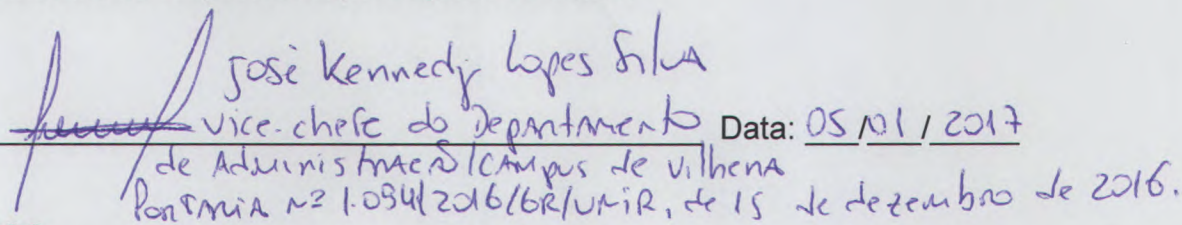 José Kennedy Lopes Silva
vice-chefe do Departamento Data: 05/01/2017
de Administração/Câmpus de Vilhena
Portaria nº 1.094/2016/GR/UNIR, de 15 de dezembro de 2016.